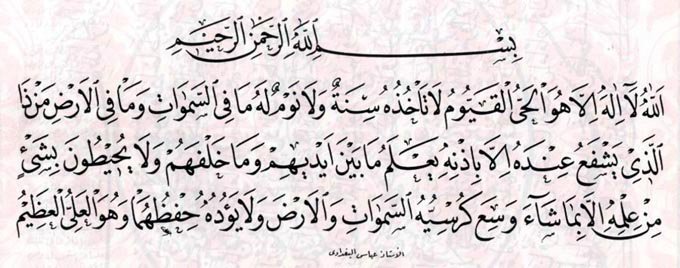 بِسْمِ اللهِ الرَّحْمٰنِ الرَّحِيمِ
اَللهُ لَآ اِلٰهَ اِلَّا هُوَ الْحَيُّ الْقَيُّومُ لَا تَأْخُذُهُ سِنَةٌ وَلَا نَوْمٌ لَهُ مَا فِي السَّمٰوَاتِ وَمَا فِي الْاَرْضِ مَنْ ذَا
الَّذِي يَشْفَعُ عِنْدَهُ اِلَّا بِاِذْنِهِ يَعْلَمُ مَا بَيْنَ اَيْدِيهِمْ وَمَا خَلْفَهُمْ وَلَا يُحِيطُونَ بِشَيْئٍ
مِنْ عِلْمِهِ اِلَّا بِمَا شَآءَ وَسِعَ كُرْسِيُّهُ السَّمٰوَاتِ وَالْاَرْضَ وَلَا يَؤُدُهُ حِفْظُهُمَا وَهُوَ الْعَلِيُّ الْعَظِيمُ
الأستاذ عباس البغدادي